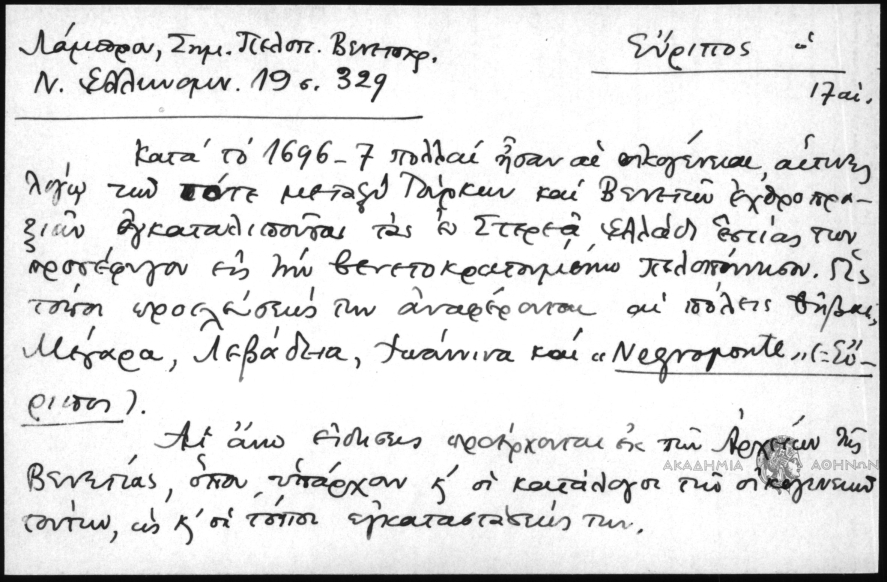 Λάμπρου, Σημ. Πελοπ. Βενετοκρ.
Ν. Ἑλληνομν. 19 σ. 329
Εὔριπος ὁ
17 αἰ.
Κατά τό 1696-7 πολλαί ἦσαν αἱ οἰκογένειαι, αἵτινες
λόγῳ τῶν τότε μεταξύ Τούρκων καί Βενετῶν ἐχθροπρα-
ξιῶν ἐγκαταλιποῦσαι τάς ἐν Στερεᾷ Ἑλλάδι ἑστίας των
προσέφυγον εἰς τήν βενετοκρατουμένην Πελοπόννησον. Ὡς
τόποι προελεύσεώς των ἀναφέρονται αἱ πόλεις Θῆβαι,
Μέγαρα, Λεβάδεια, Ἰωάννινα καί «Negroponte» (=Εὔ-
ριπος).
Αἱ ἄνω εἰδήσεις προέρχονται ἐκ τῶν Ἀρχείων τῆς
Βενετίας, ὅπου ὑπάρχουν κ' οἱ κατάλογοι τῶν οἰκογενειῶν
τούτων, ὡς κ' οἱ τόποι ἐγκαταστάσεώς των.
ΑΚΑΔΗΜΙΑ ΑΘΗΝΩΝ